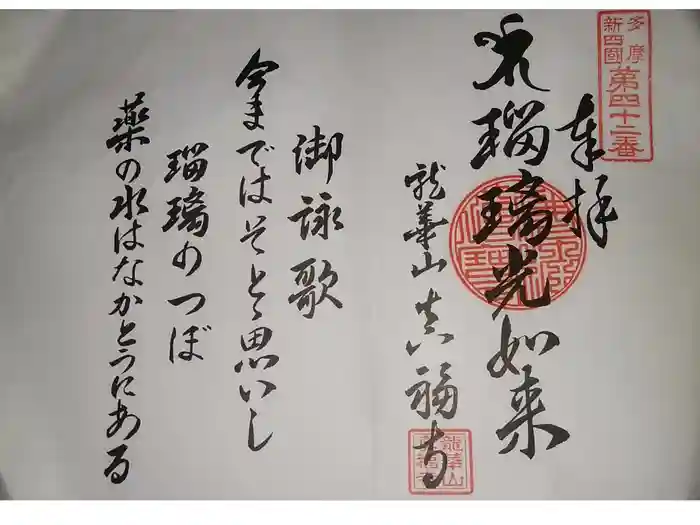 多摩
新四國
第四十二番
奉拝
瑠璃光如来
龍華山真福寺
龍華山
御詠歌
今まではよそと思いし
瑠璃のつぼ
薬の水はなかとうにある